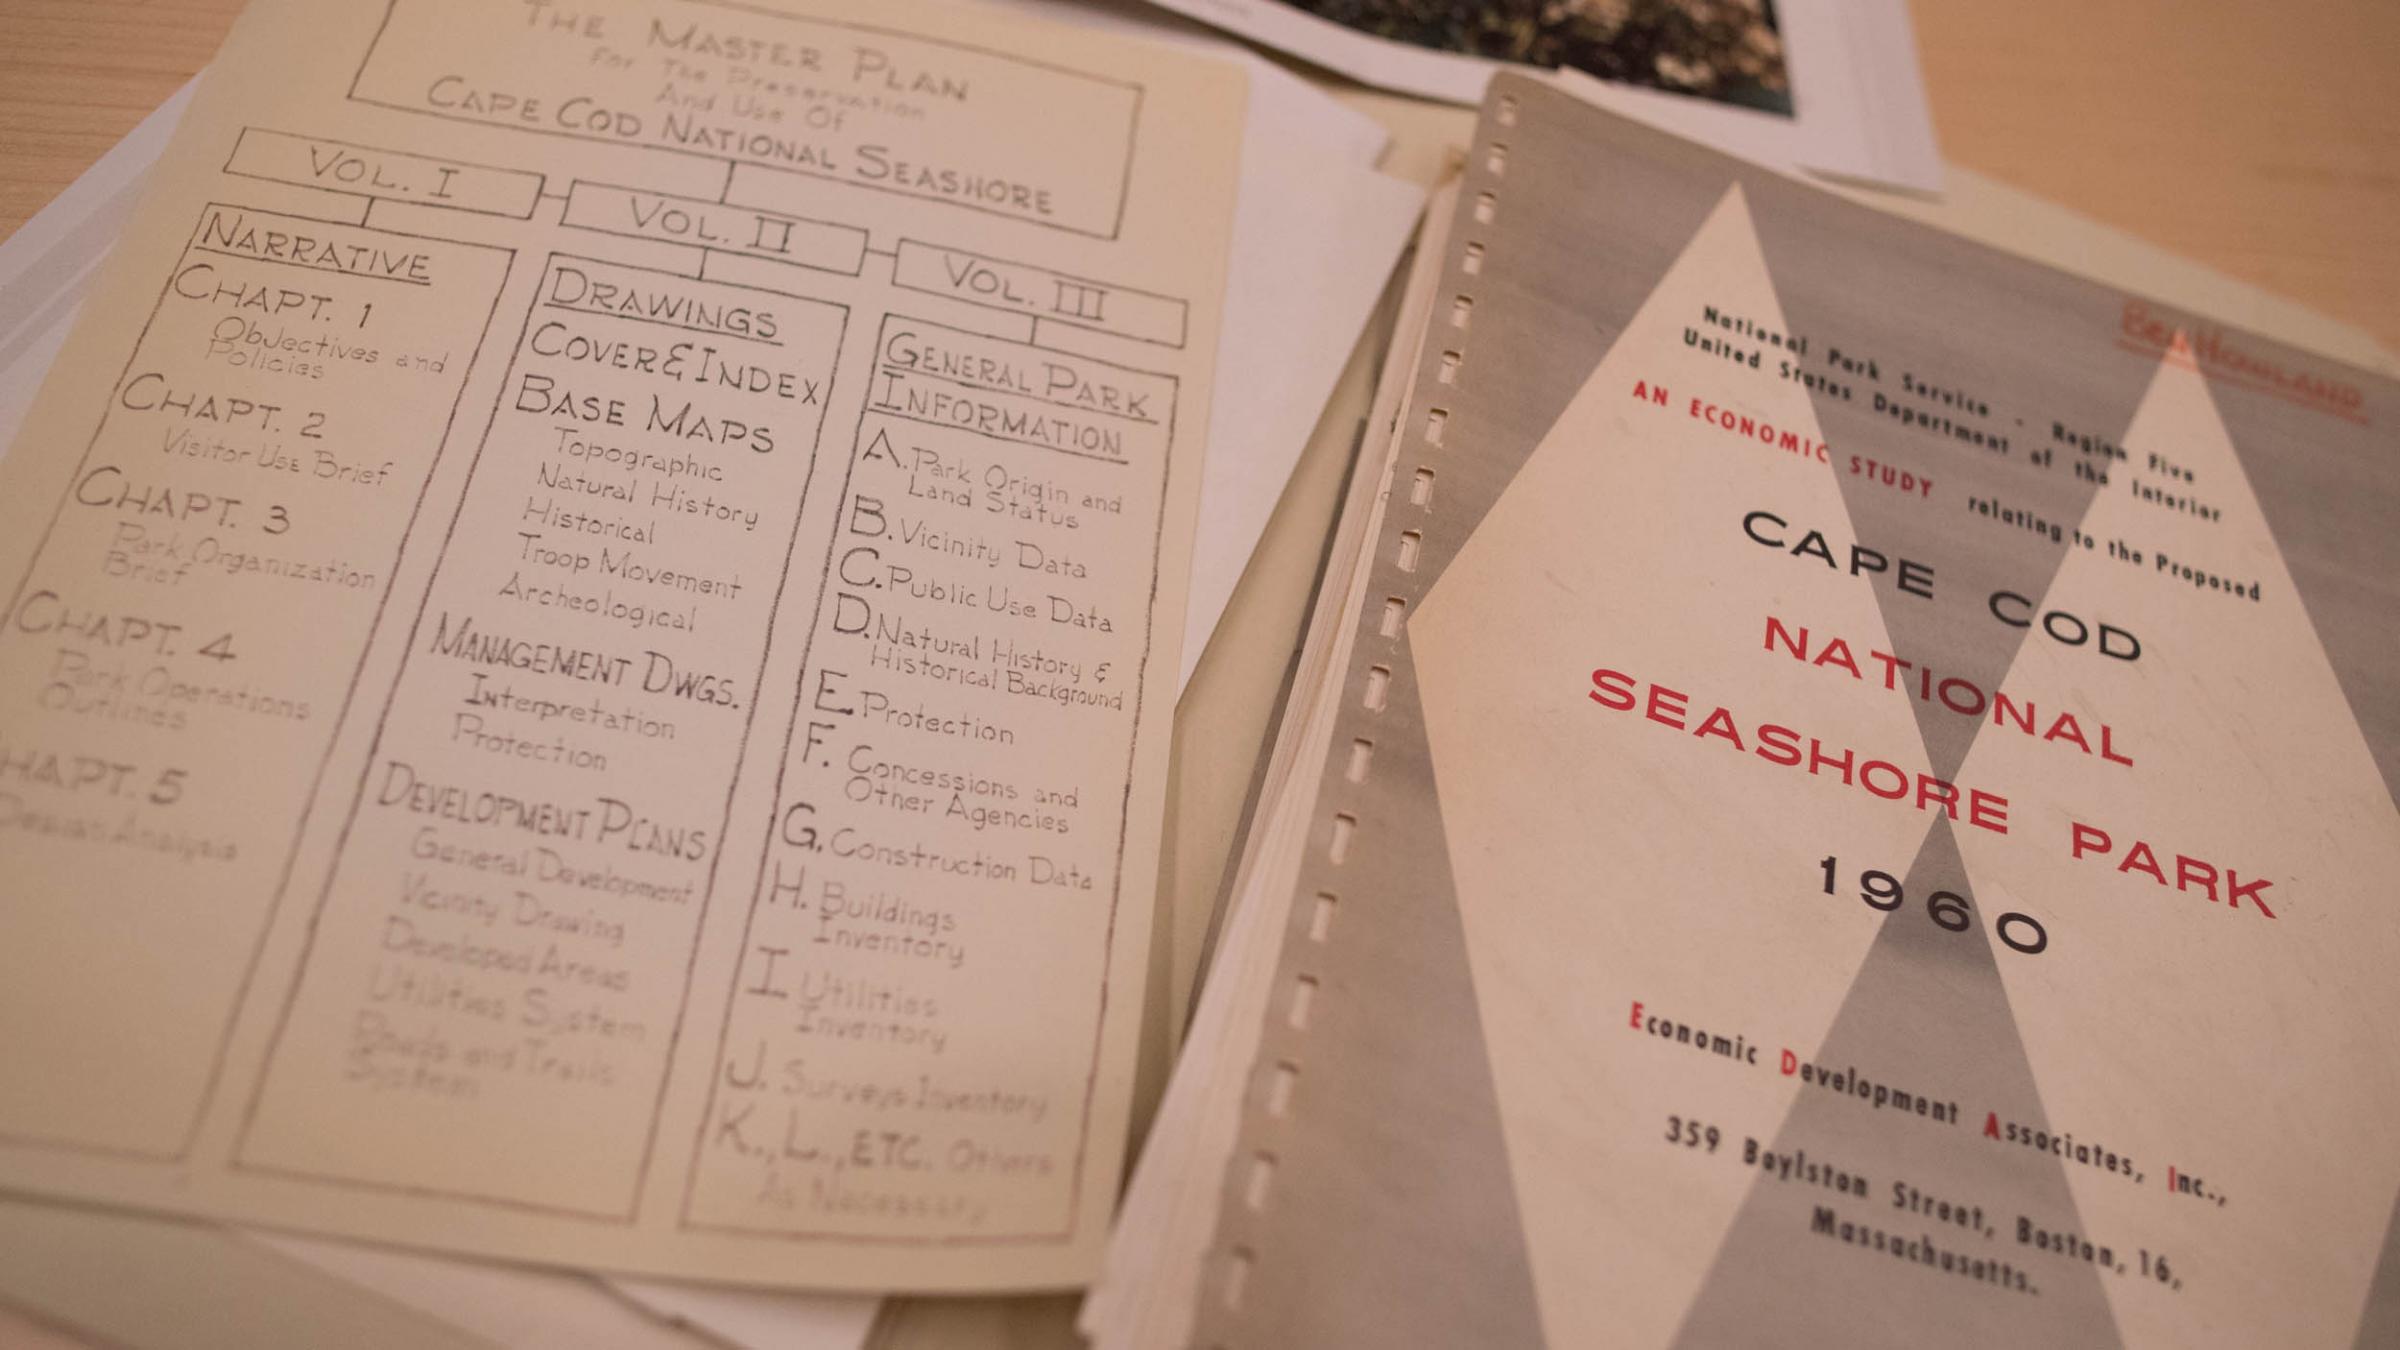 THE MASTER PLAN
For The Preservation
And Use Of
CAPE COD NATIONAL SEASHORE
VOL. I
NARRATIVE
CHAPT. 1
Objectives and
Policies
CHAPT. 2
Visitor Use Brief
CHAPT. 3
Park Organization
Brief
CHAPT. 4
Park Operations
Outlines
CHAPT. 5
Design Analysis
VOL. II
DRAWINGS
COVER & INDEX
BASE MAPS
Topographic
Natural History
Historical
Troop Movement
Archeological
MANAGEMENT DWGS.
Interpretation
Protection
DEVELOPMENT PLANS
General Development
Vicinity Drawing
Developed Areas
Utilities System
Roads and Trails
System
VOL. III
GENERAL PARK
INFORMATION
A. Park Origin and
Land Status
B. Vicinity Data
C. Public Use Data
D. Natural History &
Historical Background
E. Protection
F. Concessions and
Other Agencies
G. Construction Data
H. Buildings
Inventory
I Utilities
Inventory
J. Surveys Inventory
K., L., ETC. Others
As Necessary
BEN HOWLAND
National Park Service - Region Five
United States Department of the Interior
AN ECONOMIC STUDY relating to the Proposed
CAPE COD
NATIONAL
SEASHORE PARK
1960
Economic Development Associates, Inc.,
359 Boylston Street, Boston, 16,
Massachusetts.